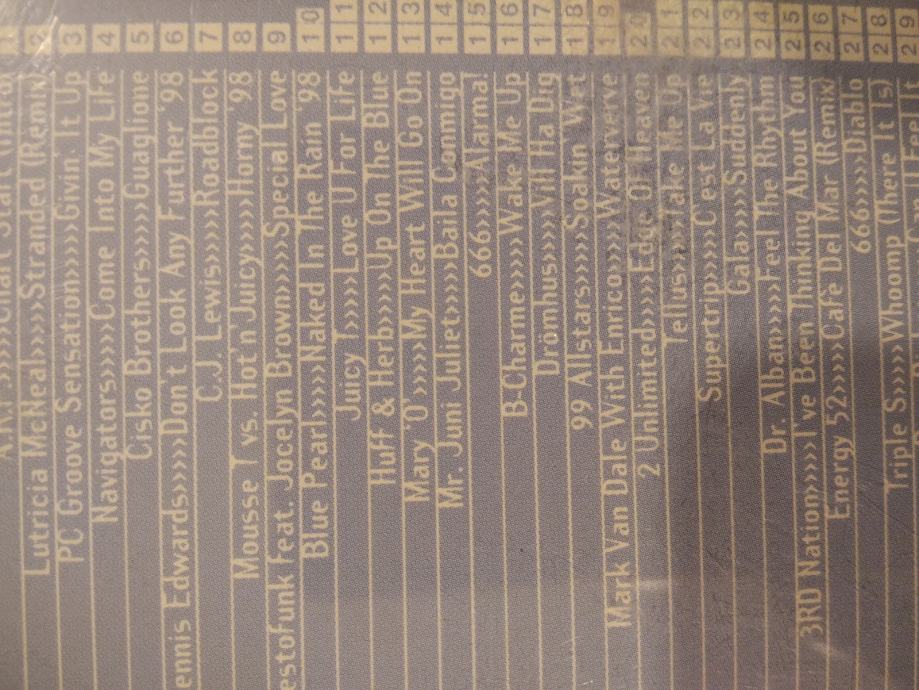 Lutricia McNeal>>>>Stranded (Remix) 2
PC Groove Sensation>>>>Givin' It Up 3
Navigators>>>>Come Into My Life 4
Cisko Brothers>>>>Guaglione 5
ennis Edwards>>>>Don't Look Any Further '98 6
C.J. Lewis>>>>Roadblock 7
Mousse T vs. Hot'n'Juicy>>>>Horny '98 8
estofunk feat. Jocelyn Brown>>>>Special Love 9
Blue Pearl>>>>Naked In The Rain '98 10
Juicy T>>>>Love U For Life 11
Huff & Herb>>>>Up On The Blue 12
Mary 'O'>>>>My Heart Will Go On 13
Mr. Juni Juliet>>>>Baila Comnigo 14
666>>>>Alarma! 15
B-Charme>>>>Wake Me Up 16
Drömhus>>>>Vill Ha Dig 17
99 Allstars>>>>Soakin' Wet 18
Mark Van Dale With Enrico>>>>Waterverve 19
2 Unlimited>>>>Edge Of Heaven 20
Tellus>>>>Take Me Up 21
Supertrip>>>>C'est La Vie 22
Gala>>>>Suddenly 23
Dr. Alban>>>>Feel The Rhythm 24
3RD Nation>>>>I've Been Thinking About You 25
Energy 52>>>>Café Del Mar (Remix) 26
666>>>>Diablo 27
Triple S>>>>Whoomp (There It Is) 28
29